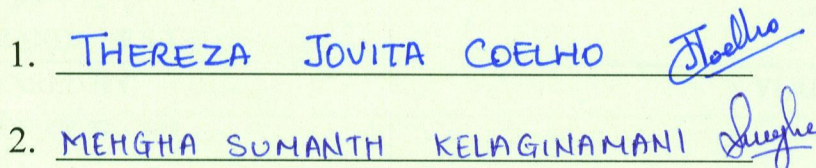 1. THEREZA JOVITA COELHO JCoelho
2. MEHGHA SUMANTH KELAGINAMANI